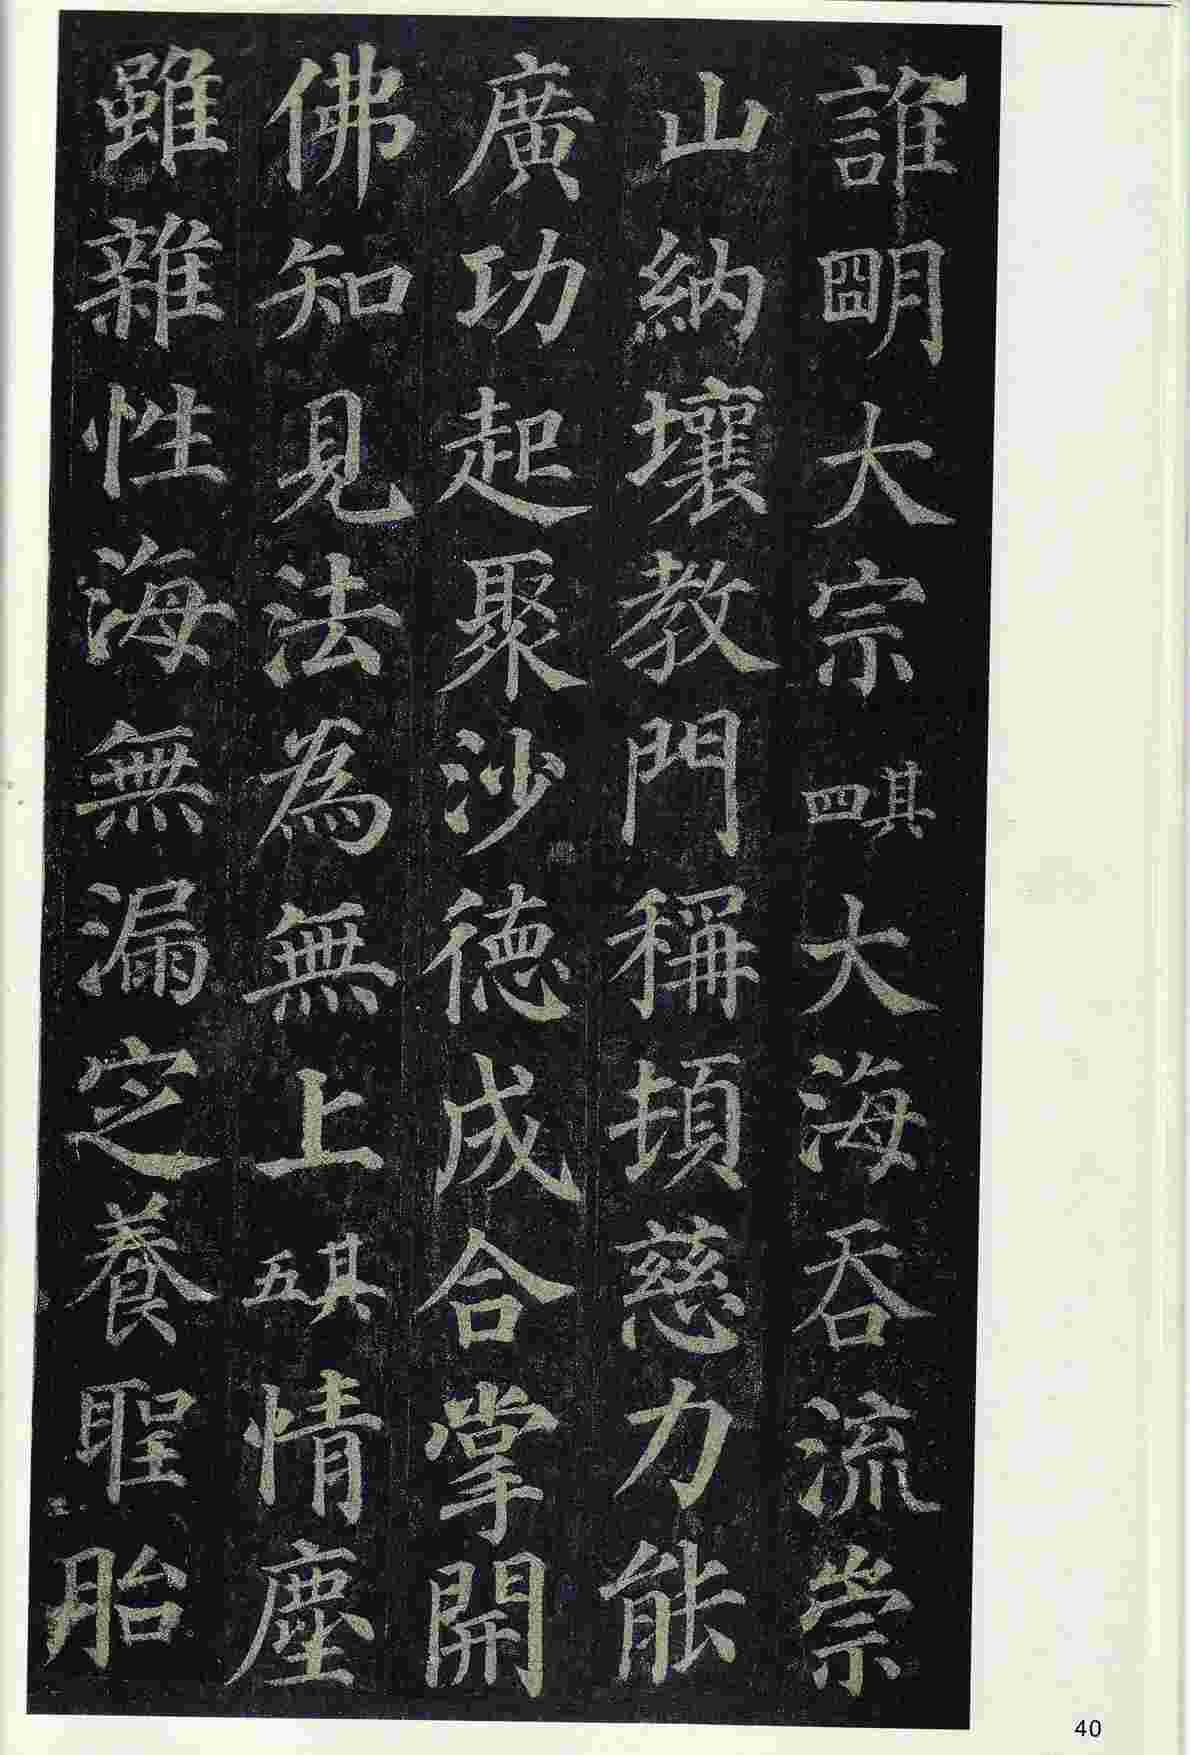 誰明大宗其四大海吞流崇
山納壤教門稱頓慈力能
廣功起聚沙德成合掌開
佛知見法為無上其五情塵
雖雜性海無漏定養聖胎
40